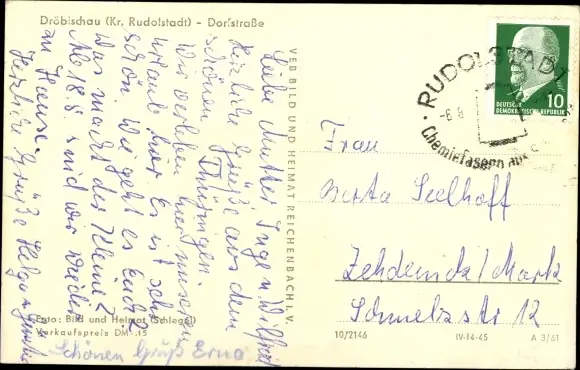 Dröbischau (Kr. Rudolstadt) - Dorfstraße
Liebe Mutter, Inge u. Wilfried
Herzliche Grüße aus dem
schönen Thüringen.
Wir verleben hier unseren
Urlaub hier. Es ist sehr
schön. Wie geht es Euch?
Was macht der Kleine?
Ab 18.8 sind wir wieder
zu Hause.
Herzliche Grüße Helga
Schönen Gruß Erna
Foto: Bild und Heimat (Schlegel)
Verkaufspreis DM -.15
VEB BILD UND HEIMAT REICHENBACH I. V.
RUDOLSTADT
-6 8
Chemiefasern aus
DEUTSCHE
DEMOKRATISCHE REPUBLIK
10
Frau
Berta Seelhoff
Zehdenick/Mark
Schmelzstr 12
10/2146
IV-14-45
A 3/61